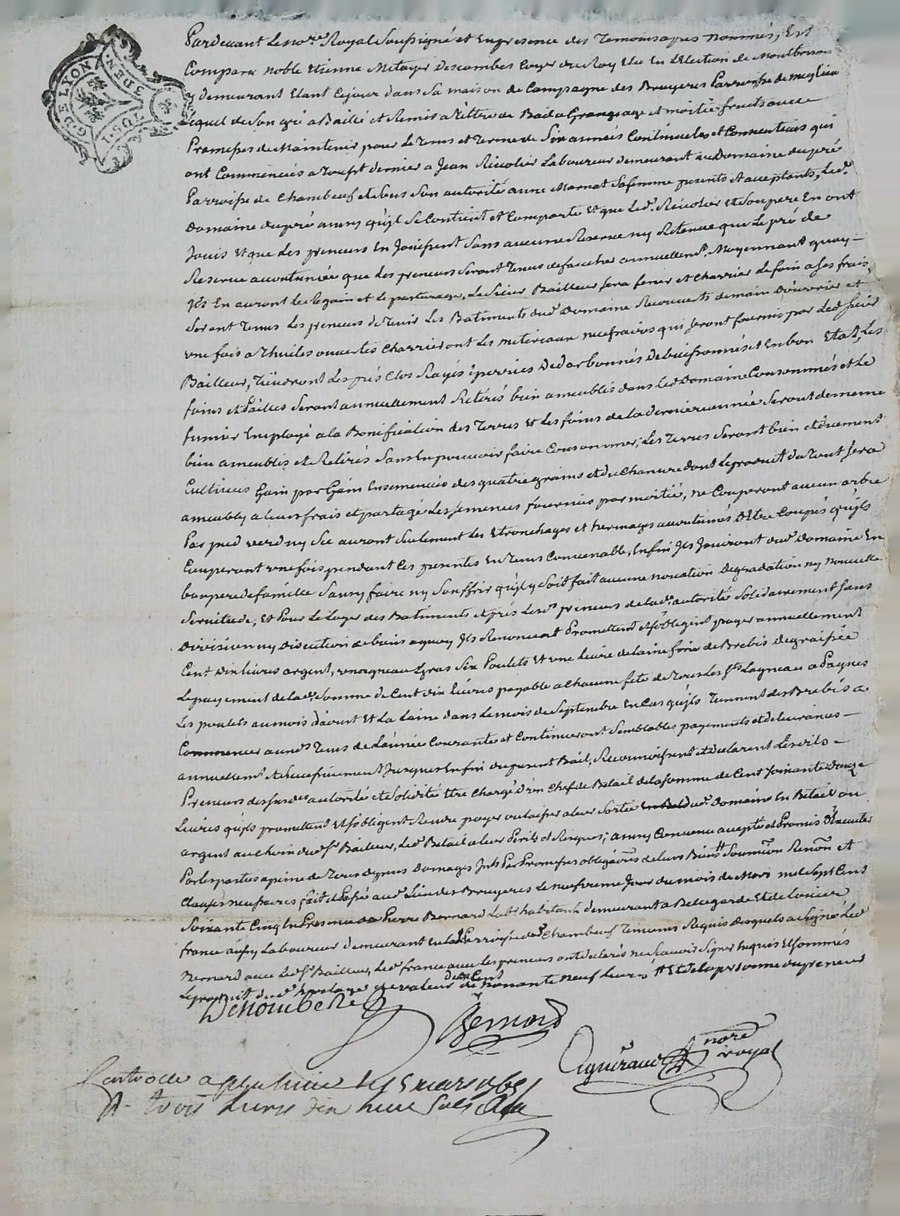 G. DE LYON
3 DEN
Pardevant Le not.re Royal Soussigné et En presence des Temoins apres nommés, Est
Comparu noble Etienne Metayer Descombes Coyer du Roy Elu en L'Election de Montbrison
demeurant Etant Cejour dans sa maison de Campagne des Bruyeres Parroisse de
Lequel de Son gré a Baillé et Remis a Tittre de Bail a Grangeage et moitié fruits avec
Promesses de Maintenir pour le Tems et Terme de Six années Continuelles et Consecutives qui
ont Commencées a Tousst dernier a Jean Nicolier Laboureur demeurant au Domaine du pré
Parroisse de Chambeuf et Sous Son autorité a Sa femme presents et acceptants, Led.
Domaine du pré ainsy qu'jl Se Contient et Comporte et que Led. Nicolier et Son pere En ont
Jouis Et que Les preneurs En Jouissent Sans aucune Reserve ny Retenue que Le pré de
Reserve accoutumée que Les preneurs Seront Tenus de faucher annuellem.t Moyennant quoy
Jls En auront Le Regain et Le pasturage, Le Sieur Bailleur fera fener et Charrier Le foin a Ses frais,
Seront Tenus Les preneurs de Tenir Les Batiments dud. Domaine Recouverts de main D'ouvrier et
une fois a Thuiles Charrieront Les materiaux necessaires qui Seront fournis par Led. Sieur
Bailleur, Tiendront Les prés Clos Rayés et En bon Etat, Les
foins et Pailles Seront annuellement Retirés bien ameublis dans Led. Domaine Consommés et Le
fumier Employé a la Bonification des Terres Et Les foins de la derniere année Seront de meme
bien ameublis et Retirés Sans En pouvoir faire Consommer; Les Terres Seront bien et duement
Cultivées Gain par Gain Ensemencées des quatre grains et du Chanvre dont Le produit du Tout Sera
ameubly a leurs frais et partagé Les Semences fournies par moitié, ne Couperont aucun arbre
Par pied verd ny Sec auront Seulement Les Etronchages et Hermages accoutumés D'Etre Coupés qu'jls
Couperont une fois pendant Ces presentes En Tems Convenable, Enfin Jls Jouiront dud. Domaine En
bon pere de famille Sans y faire ny Souffrir qu'jl y Soit fait aucune novation Degradation ny nouvelle
Servitude, Et Pour Le Loyer des Batiments Les d. preneurs de lad. autorité Solidairement Sans
Division ny Discution de biens a quoy Jls Renoncent Promettent et s'obligent payer annuellement
Cent Dix Livres argent, un agneau gras Six Poulets Et une Livre de laine fine de Brebis degraissée
Le payement de lad. Somme de Cent dix Livres payable a Chacune fete de Tous Les Sts L'agneau a Paques
Les poulets au mois d'aoust Et La laine dans Le mois de Septembre En Cas qu'jls Tiennent des Brebis a
Commencer auxd. Tems de L'année Courante et Continueront Semblables payements et delivrances
annuellem.t Jusques En fin du present Bail, Reconnoissent et Declarent Lesdits
Preneurs desd. autorité et Solidité Etre Chargé D'un Chef de Betail de la Somme de Cent Soixante Douze
Livres qu'jls promettent et s'obligent Rendre payer ou laisser a leur Sortie dud. Domaine En Betail ou
argent au Choix dud. Sr Bailleur, Led. Betail a leur Perils et Risques; ainsy Convenu accepté et Promis D'Executer
Par Les parties a peine de Tous depens Domages Jnts Par Promesses obligaõns de leurs Biens Soumiõn Renõn et
Clauses necessaires fait et Passé aud. Lieu des Bruyeres Le neufieme Jour du mois de Mars mil Sept Cent
Soixante Cinq En Presence de Pierre Bernard habitant demeurant a Bellegarde Et de
france Laboureur demeurant En lad. Parroisse de Chambeuf Temoins Requis Desquels a Signé Led.
Bernard avec Led. Sr Bailleur, Led. france avec Les preneurs ont declarés ne Scavoir Signer Enquis Et Sommés
Le produit dud. de valeur de deux Cent nonante neuf Livres Et de la personne du preneur
Bernard
not.re royal
a 15 mars 1765
R. trois Livres dix huit Sols